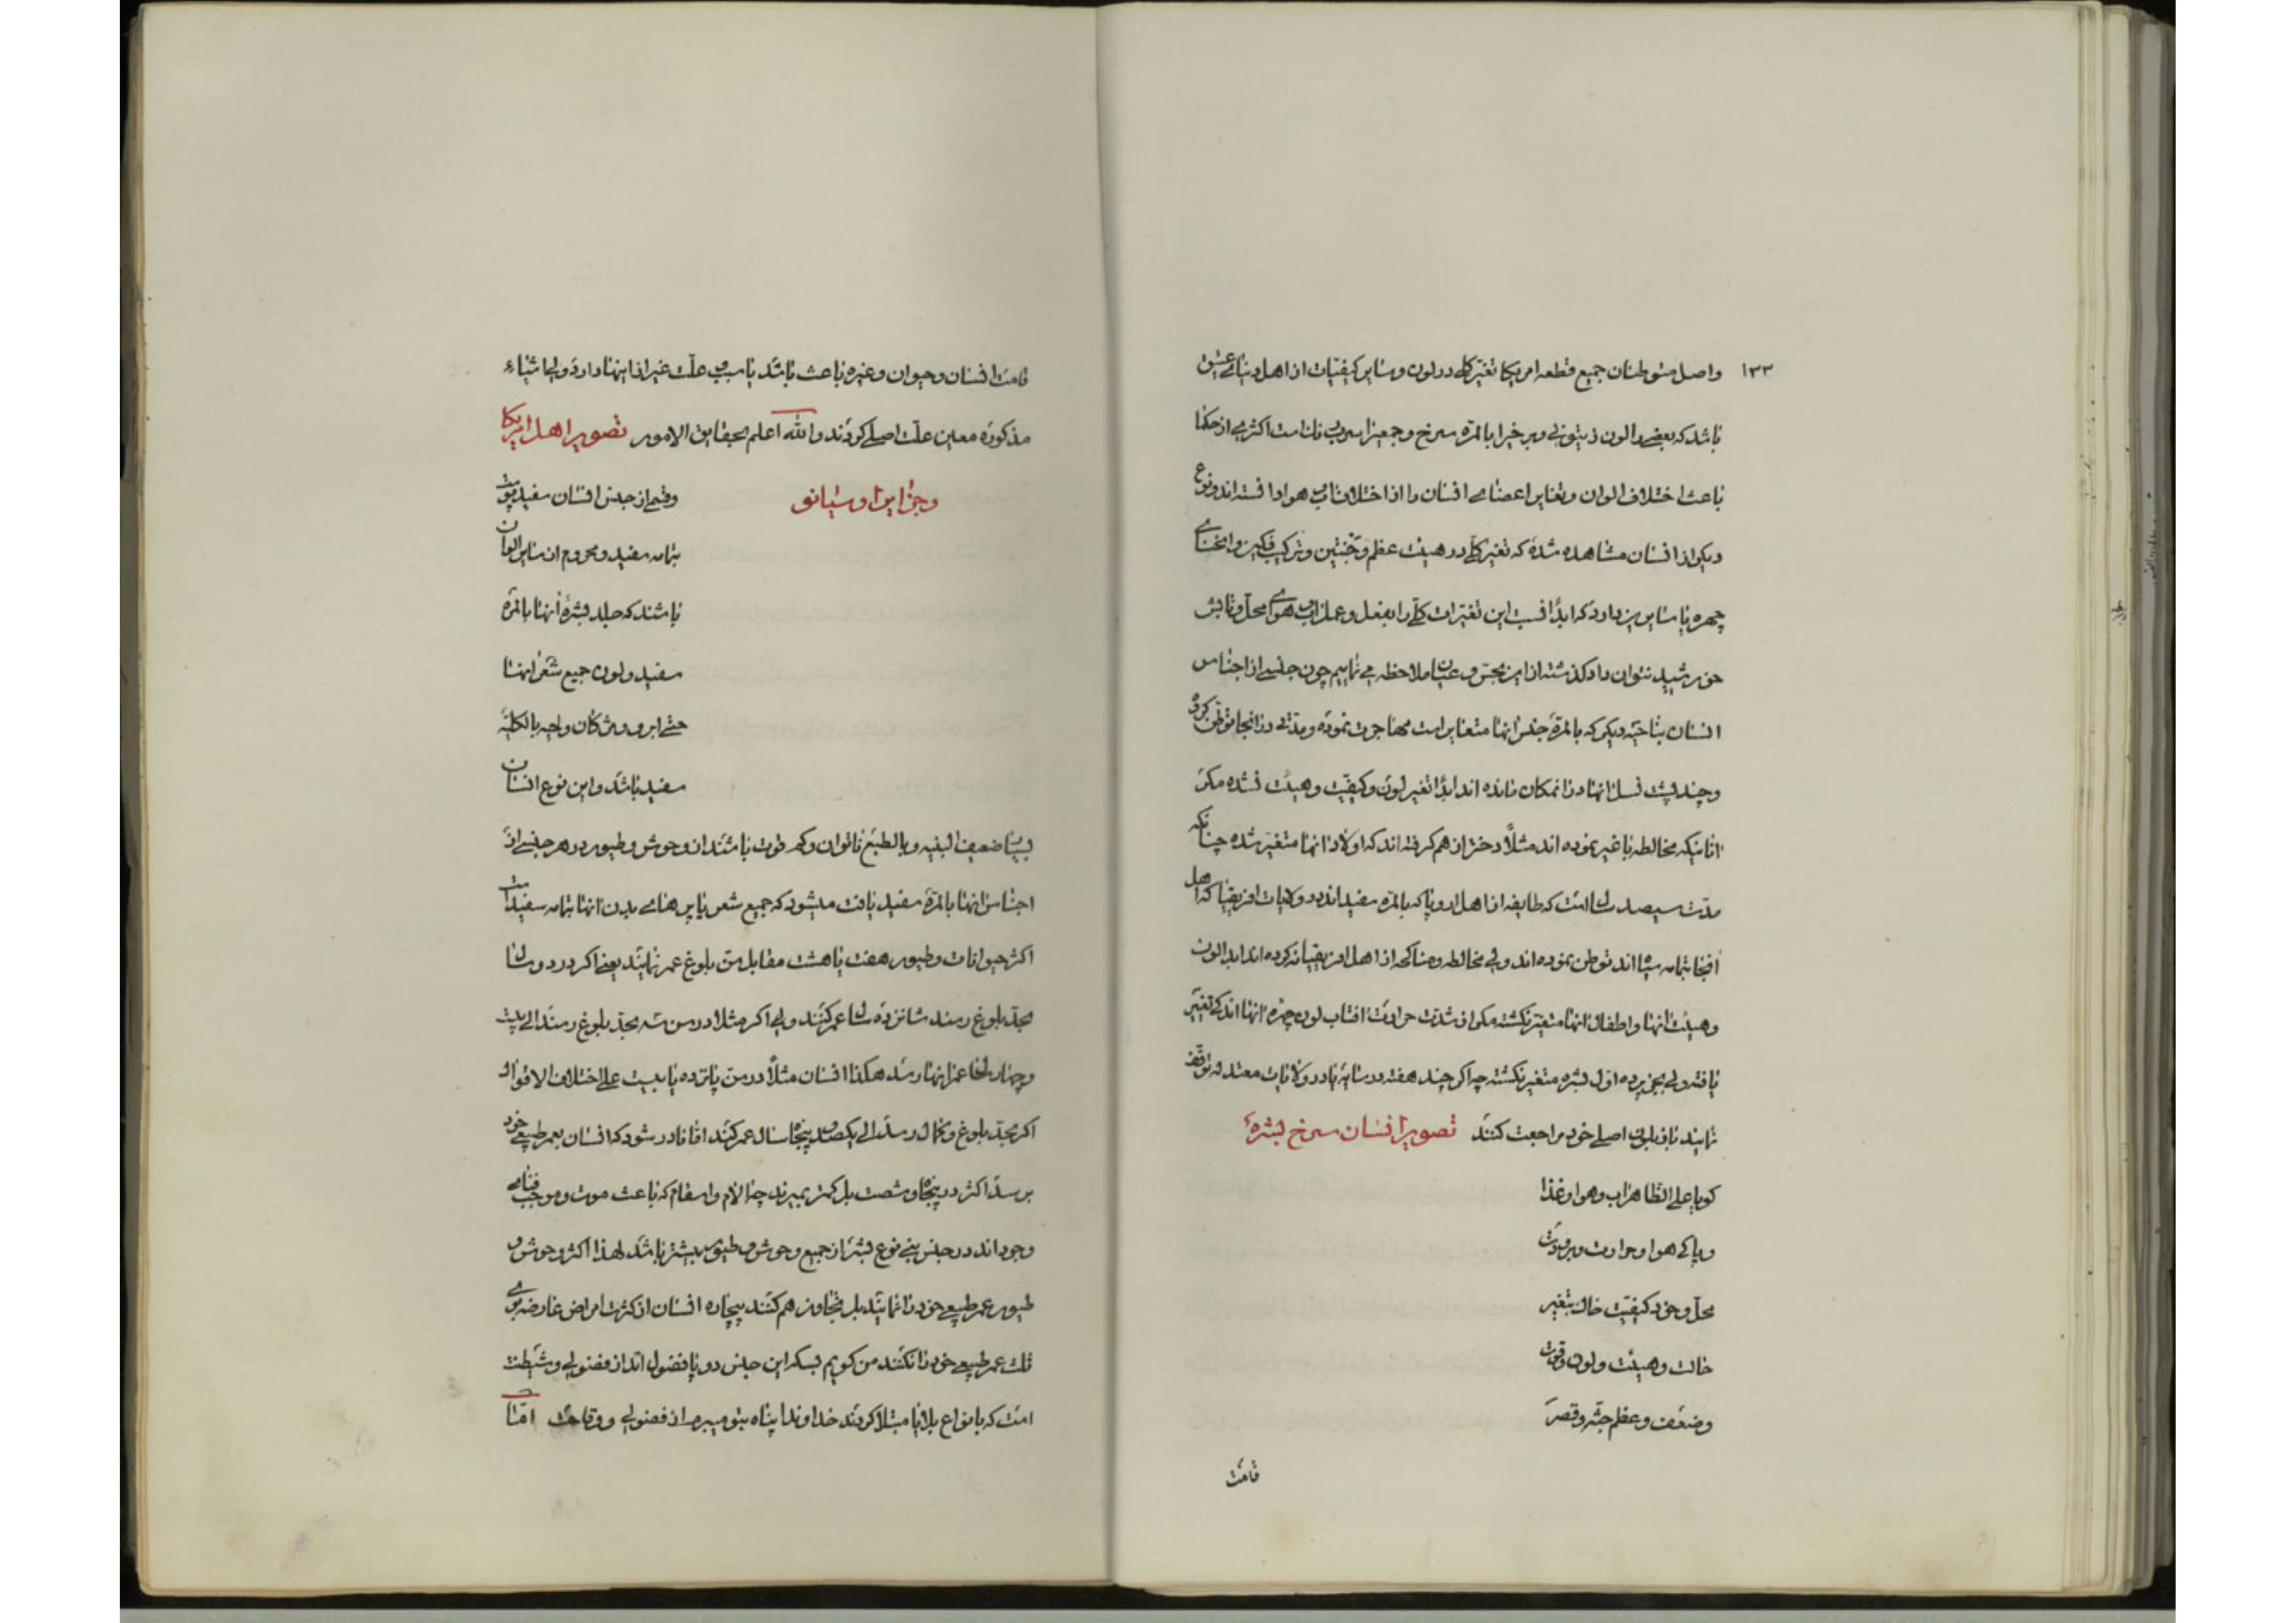 ۱۳۳
واصل متوطنان جمیع قطعه امریکا تغیر کلے در لون و سایر کیفیات از اهل دنیاے عتیق
باشد که بعضے را لون زیتونے و برخیرا بالمره سرخ و جمعیرا است اکثرے از حکما
باعث اختلاف الوان و تغایر اعضاے انسان را از اختلاف آب هوا دانسته اند و نوع
دیکر از انسان مشاهده شده که تغیر کلے در هیئت عظم و ترکیب فکین و انحناے
چهره با سایرین دارد که ابدًا نسبت این تغیرات کلے را بفعل و عمل آب هواے محل و تابش
خورشید نتوان داد کذشته از این بحس و عیان ملاحظه مے نماییم چون جنسے از اجناس
انسان بناحیه دیکر که بالمره جنس انها متغایر است مهاجرت نموده و مدتے در انجا توطن کرده
و چند پشت نسل انها در انمکان مانده اند ابدًا تغیر لون و کیفیت و هیئت نشده مکر
انانیکه مخالطه با غیر نموده اند مثلًا دختر از هم کرفته اند که اولاد انها متغیر شده چنانکه
مدت سیصد سال است که طایفه از اهل اروپا که بالمره سفید اند در ولایات افریقیا که اهل
انجا بتمامه سیاه اند توطن نموده اند ولے مخالطه و مناکحه از اهل افریقیا نکرده اند ابدا لون
و هیئت انها و اطفال انها متغیر نکشته مکر از شدت حرارت افتاب لون چهره انها اندکے تغیر
یافته ولے بجز پرده اول بشره متغیر نکشته چه اکر چند هفته در سایه یا در ولایات معتدله توقف
نمایند باز بلون اصلے خود مراجعت کنند تصویر انسان سرخ بشره
کویا علے الظاهر اب و هوا و غذا
و پاکے هوا و حرارت و برودت
محل و خود کیفیت خاک بتغیر
حالت و هیئت و لون و قوت
و ضعف و عظم جثه و قصر
قامت
قامت انسان و حیوان و غیره باعث باشد یا سبب و علت غیر از اینها دارد ولے اشیاء
مذکوره معین علت اصلے کردند والله اعلم بحقایق الامور تصویر اهل امریکا
و جزایر اوسیانو
و قسم از جنس انسان سفید پوست
بتمامه سفید و محروم از سایر الوان
باشند که جلد بشره انها بالمره
سفید و لون جمیع شعر انها
حتے ابرو و مژکان و لحیه بالکلیه
سفید باشد و این نوع انسان
بسیار ضعیف البنیه و بالطبع ناتوان و کم قوت باشند از وحوش و طیور در هر جنسے از
اجناس انها بالمره سفید یافت میشود که جمیع شعر یا پرهاے بدن انها بتمامه سفید است
اکثر حیوانات و طیور هفت یا هشت مقابل سن بلوغ عمر نمایند یعنے اکر در دو سال
بحد بلوغ رسند شانزده سال عمر کنند ولے اکر مثلا در سن سه بحد بلوغ رسند الے بیست
و چهار سال عمر انها رسد هکذا انسان مثلًا در سن پانزده یا بیست علے اختلاف الاقوال
اکر بحد بلوغ و کمال رسد الے یکصد و پنجاه سال عمر کند اما نادر شود که انسان بعمر طبیعے خود
برسد اکثر در پنجاه و شصت بل کمتر بمیرند چه الام و اسقام که باعث موت و موجب فناے
وجود اند در جنس بنے نوع بشر از جمیع وحوش و طیور بیشتر باشد لهذا اکثر وحوش و
طیور عمر طبیعے خود را نمایند بل تجاوز هم کنند بیچاره انسان از کثرت امراض عارضه
ثلث عمر طبیعے خود را نکنند من کویم بسکه این جنس دو پا فضول اند از فضولے و شیطنت
است که بانواع بلایا مبتلا کردند خداوندا پناه بتو میبرم از فضولے و وقاحت امّا